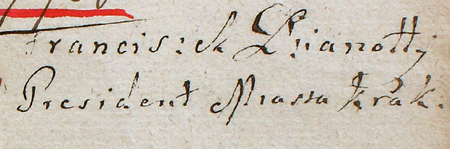 Franciszek Dzianotty
President Miasta Krak: